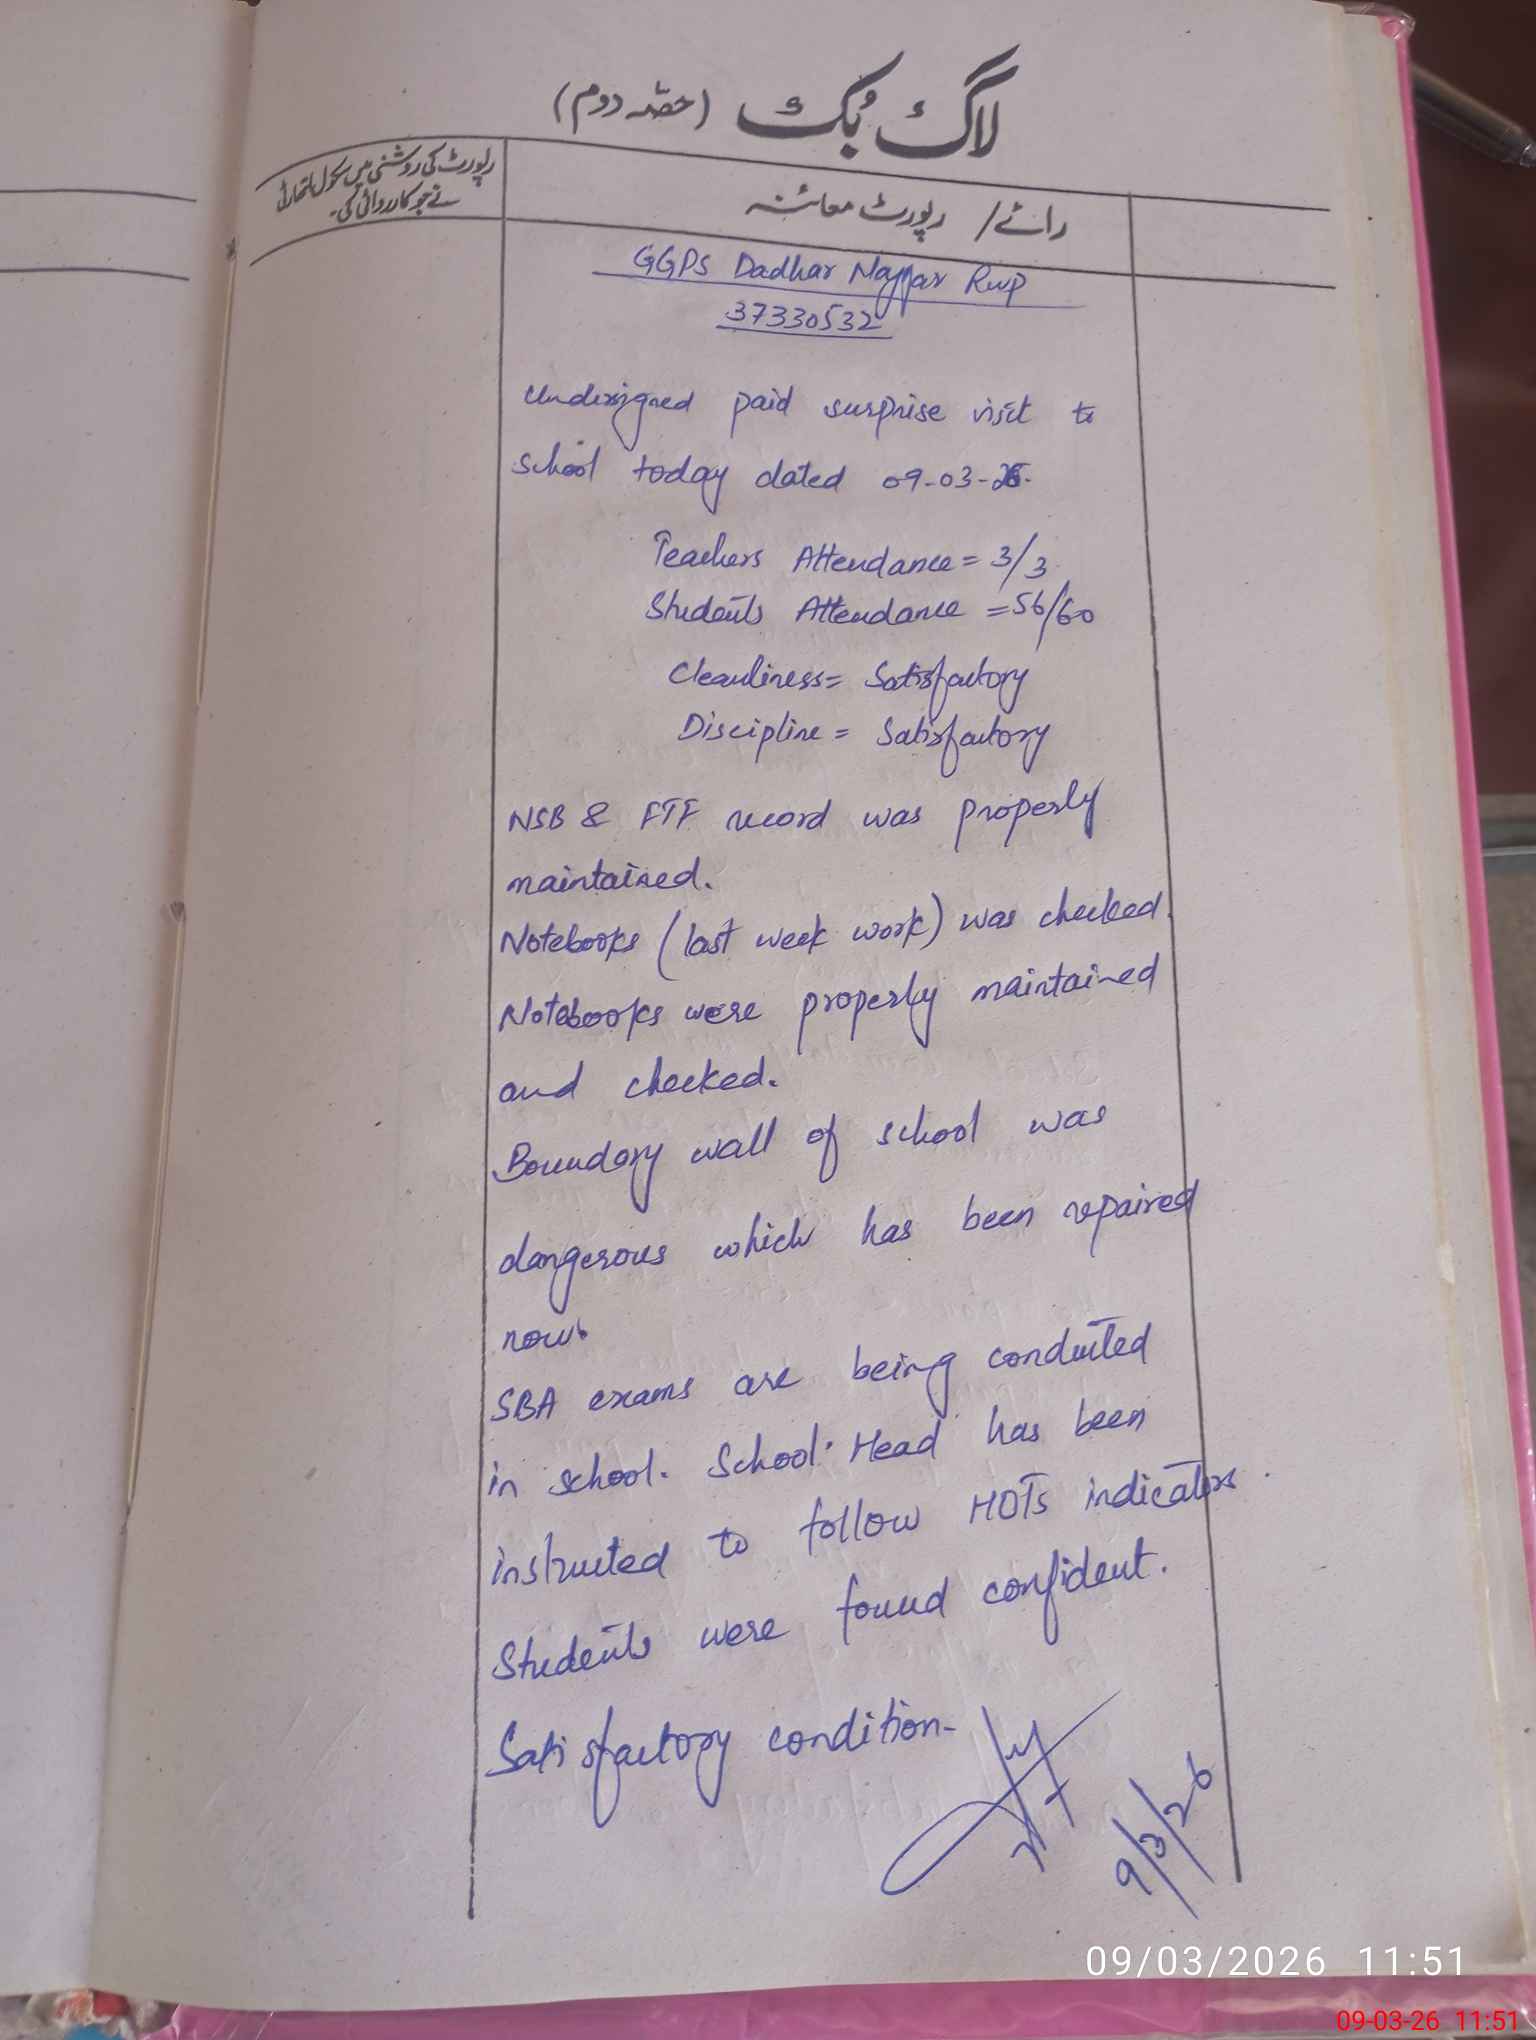 لاگ بُک (حصّہ دوم)
رائے / رپورٹ معائنہ
رپورٹ کی روشنی میں سکول اتھارٹی
نے جو کارروائی کی۔
GGPS Dadhar Najjar Rwp
37330532
Undersigned paid surprise visit to
school today dated 09-03-26.
Teachers Attendance = 3/3
Students Attendance = 56/60
Cleanliness = Satisfactory
Discipline = Satisfactory
NSB & FTF record was properly
maintained.
Notebooks (last week work) was checked.
Notebooks were properly maintained
and checked.
Boundary wall of school was
dangerous which has been repaired
now.
SBA exams are being conducted
in school. School Head has been
instructed to follow HOTs indicators.
Students were found confident.
Satisfactory condition-
9/3/26
09/03/2026 11:51
09-03-26 11:51